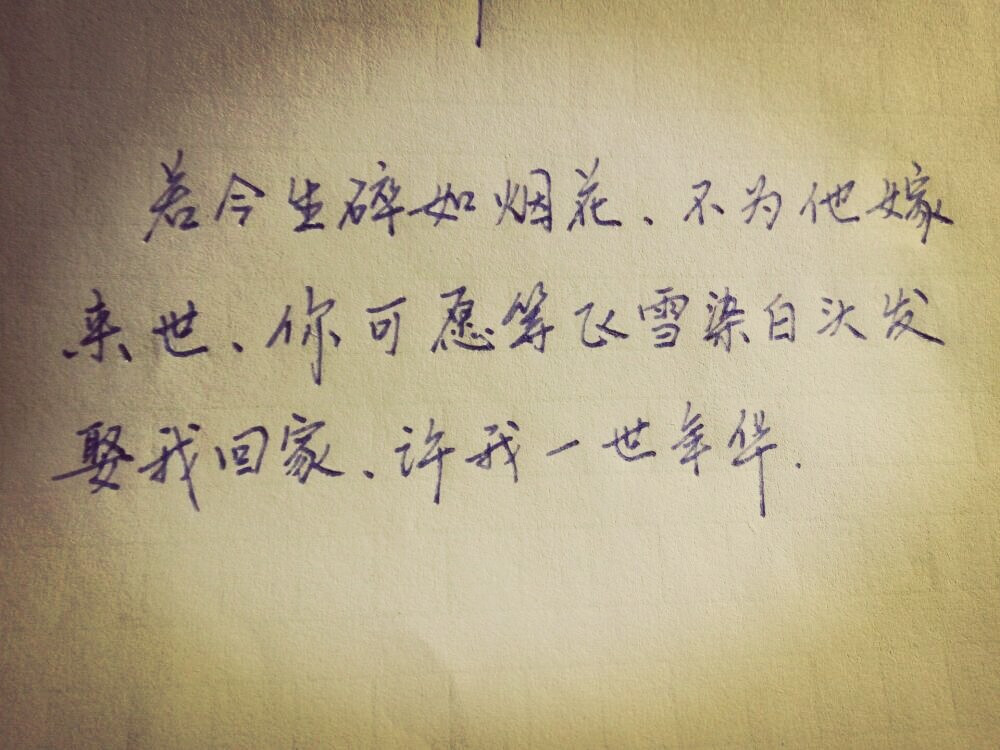 若今生碎如烟花、不为他嫁
来世、你可愿等飞雪染白头发
娶我回家、许我一世年华.